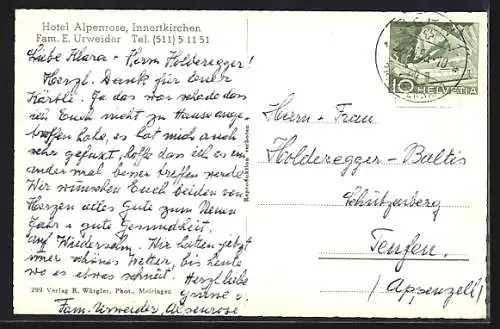 Hotel Alpenrose, Innertkirchen
Fam. E. Urweider Tel. (511) 5 11 51
Liebe Klara + Herm Holderegger!
Herzl. Dank für Euer
Kärtli. Ja das war schade dass
ich Euch nicht zu Hause ange-
troffen habe, es hat mich auch
sehr gefuxt, hoffe dass ich es ein
ander mal besser treffen werde.
Wir wünschen Euch beiden von
Herzen alles Gute zum Neuen
Jahr & gute Gesundheit.
Auf Wiedersehn. Wir hatten jetzt
imer schönes Wetter, bis heute
wo es etwas schneit. Herzliche
Grüsse:
Fam. Urweider, Alpenrose
299 Verlag R. Würgler, Phot., Meiringen
Reproduktion verboten
10 HELVETIA
Herrn + Frau
Holderegger-Baltis
Schützenberg
Teufen.
(Appenzell)